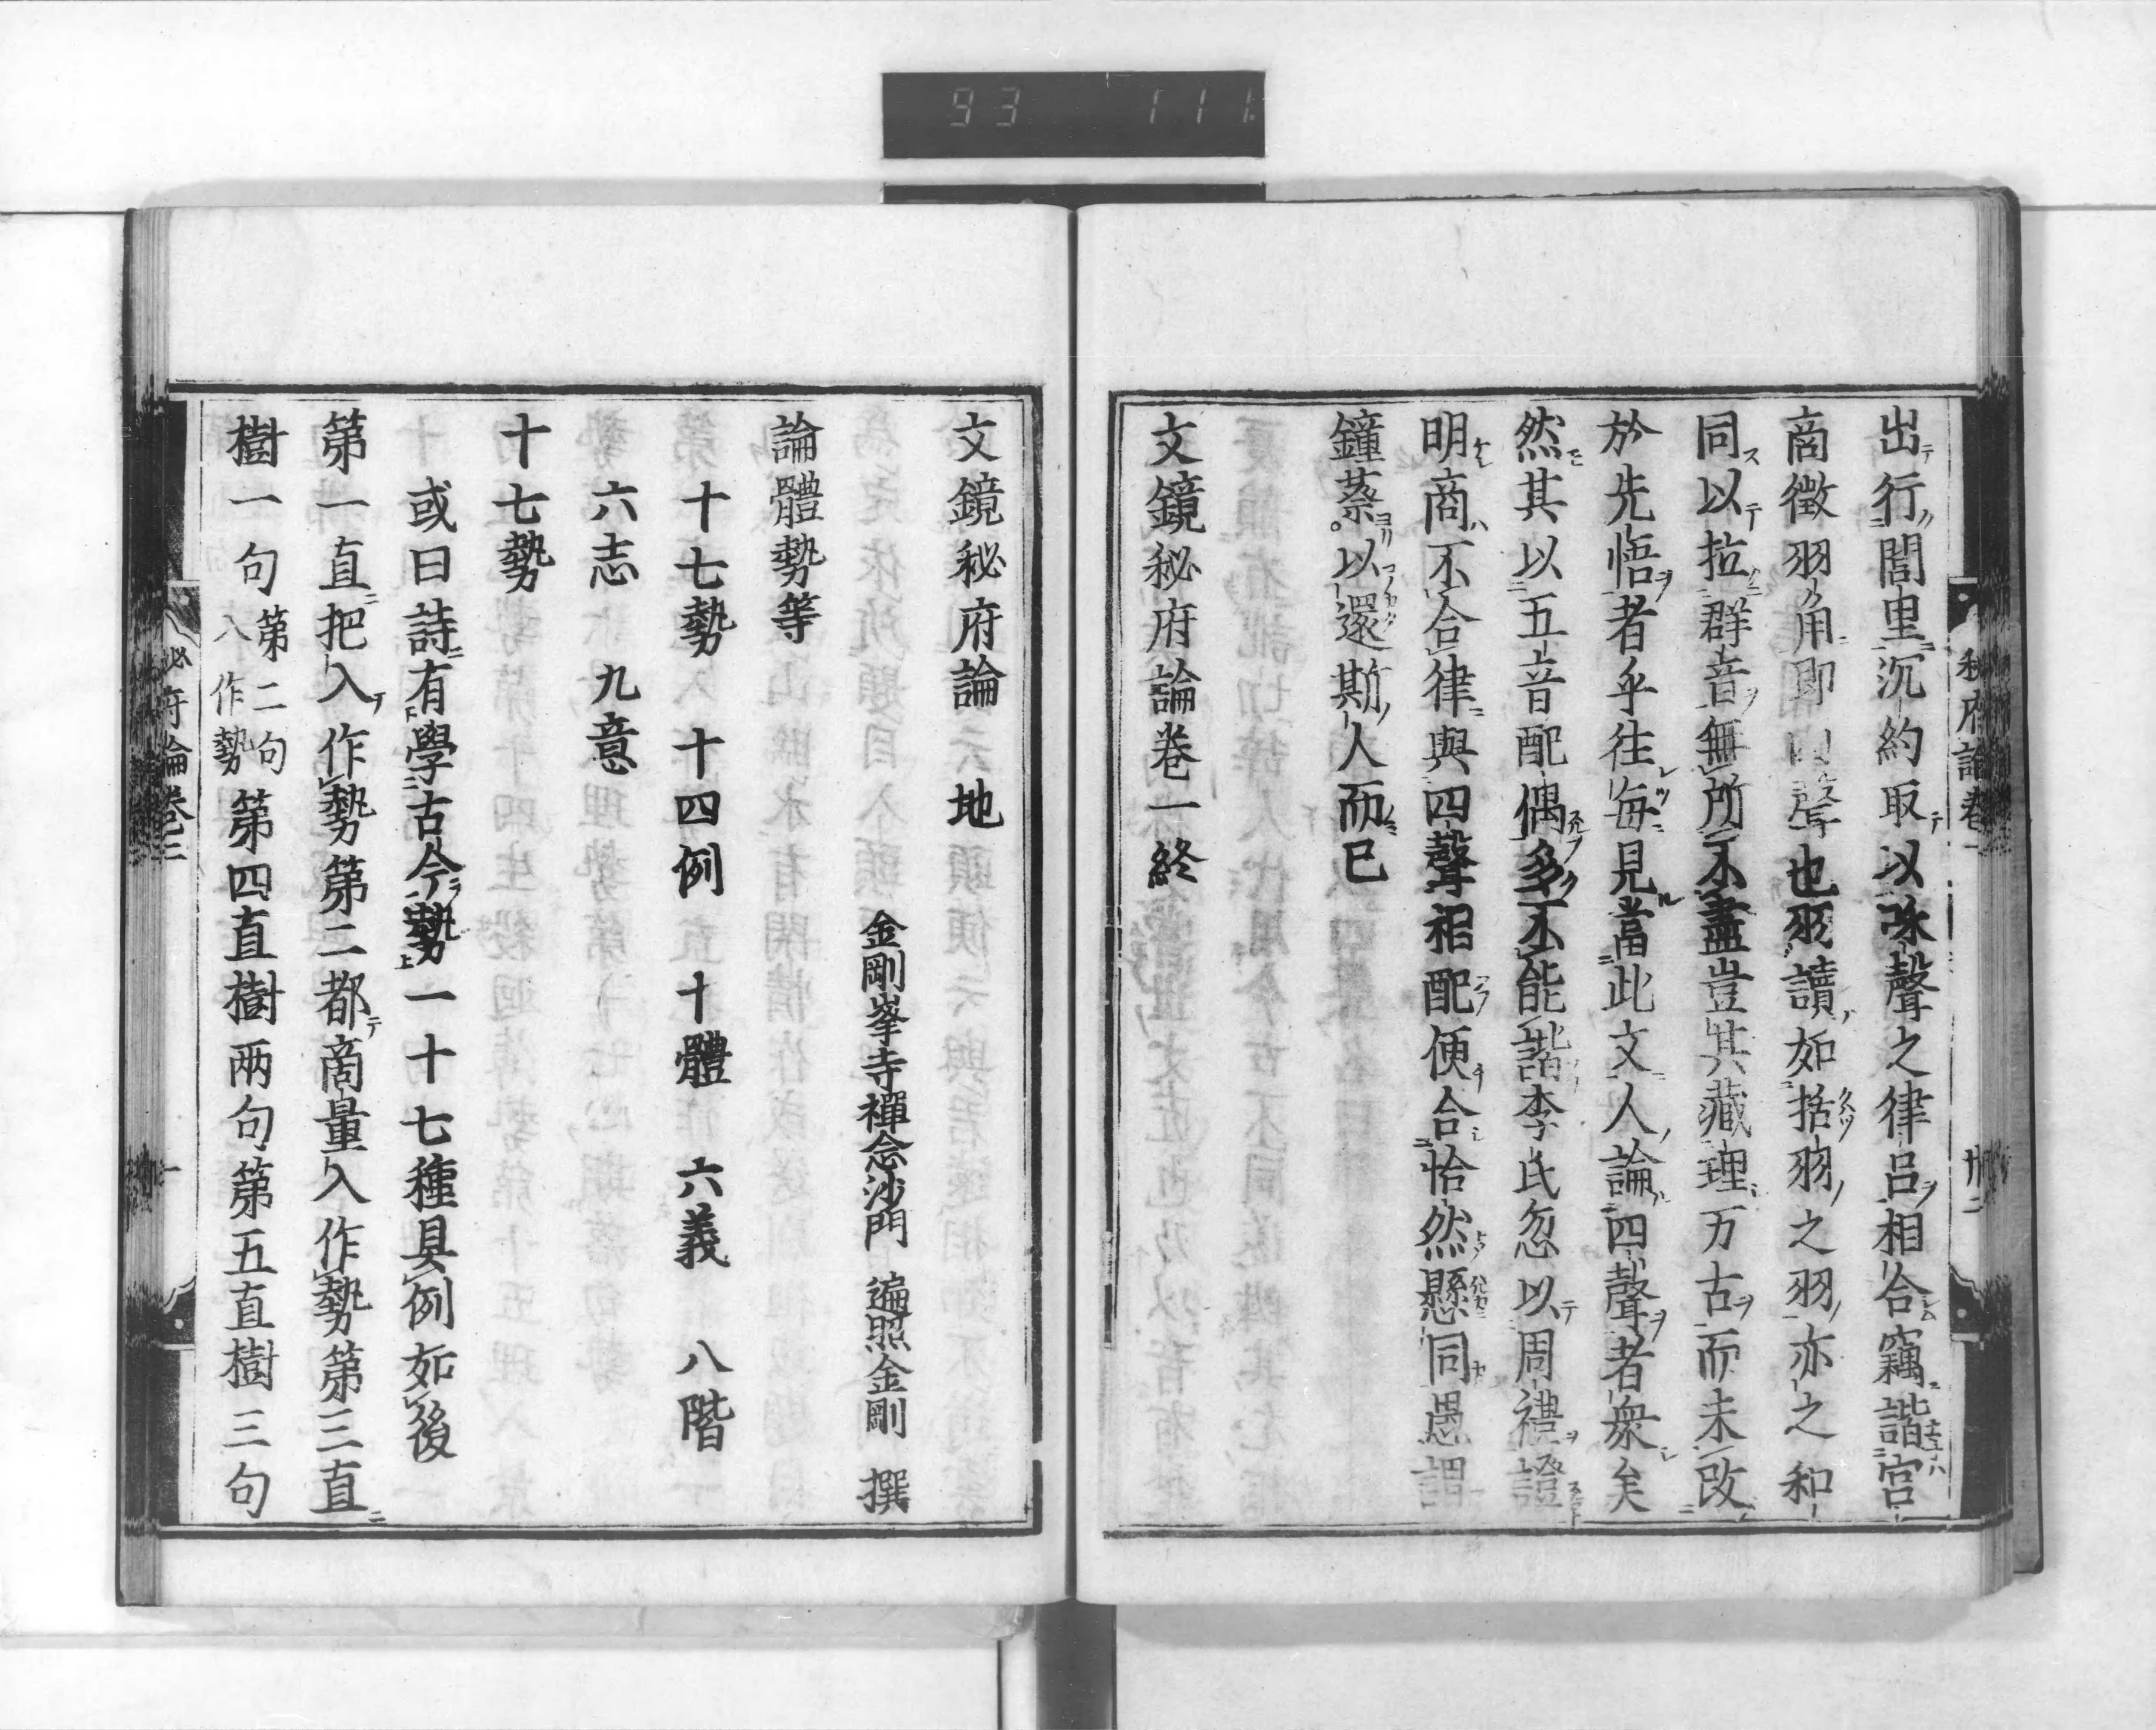 93 111
出行閭里沉約取以咮聲之律呂相合竊諧宮
商徵羽角即四聲也羽讀如括羽之羽亦之和
同以拉群音無所不盡豈其藏理万古而未改
於先悟者乎往每見當此文人論四聲者衆矣
然其以五音配偶多不能諧李氏忽以周禮證
明商不合律與四聲相配便合恰然懸同愚謂
鐘蔡以還斯人而已
文鏡秘府論卷一終
秘府論卷一 卅二
文鏡秘府論 地
金剛峯寺禪念沙門 遍照金剛 撰
論體勢等
十七勢 十四例 十體 六義 八階
六志 九意
十七勢
或曰詩有學古今勢一十七種具例如後
第一直把入作勢第二都商量入作勢第三直
樹一句第二句入作勢第四直樹兩句第五直樹三句
秘府論卷三 一